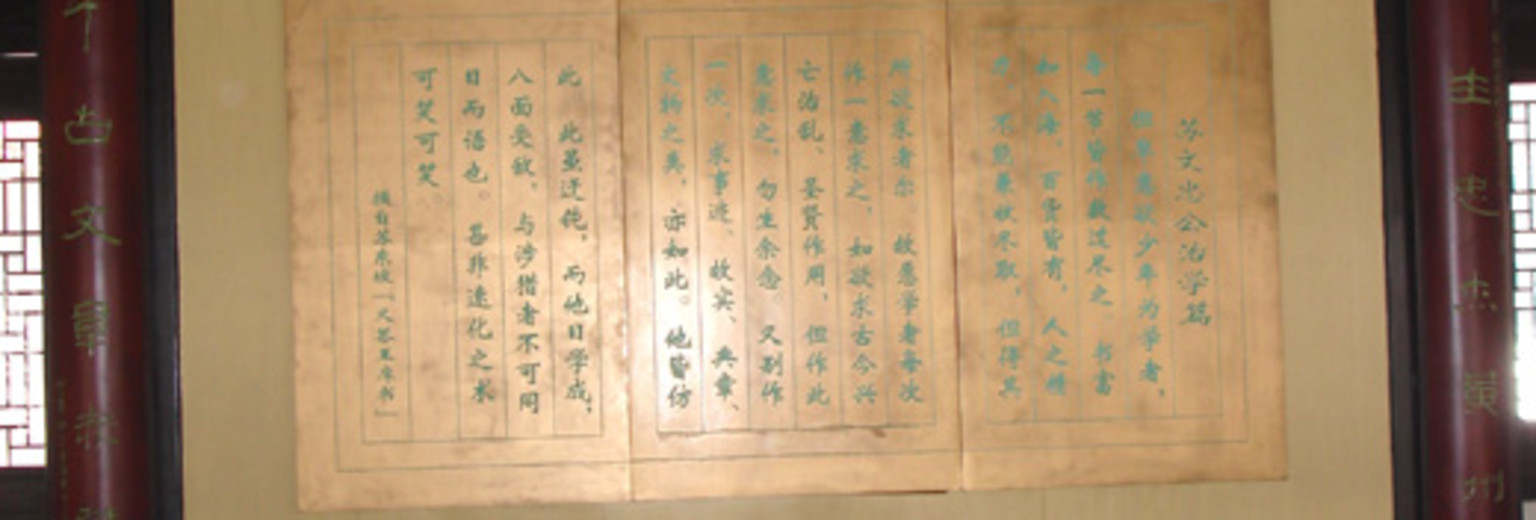 苏文忠公治学篇
但卑意欲少年为学者，
每一节皆作数过尽之 书富
如入海，百货皆有，人之精
力，不能兼收尽取，但得其
所欲求者尔 故愿学者每次
作一意求之，如欲求古今兴
亡治乱、圣贤作用，但作此
意求之，勿生余念 又别作
一次，求事迹、故实、典章、
文物之类，亦如此。他皆仿
此 此虽迂钝，而他日学成，
八面受敌，与涉猎者不可同
日而语也。甚非速化之术
可笑可笑。
摘自苏东坡「又答王庠书」
生忠杰黄州
古文章